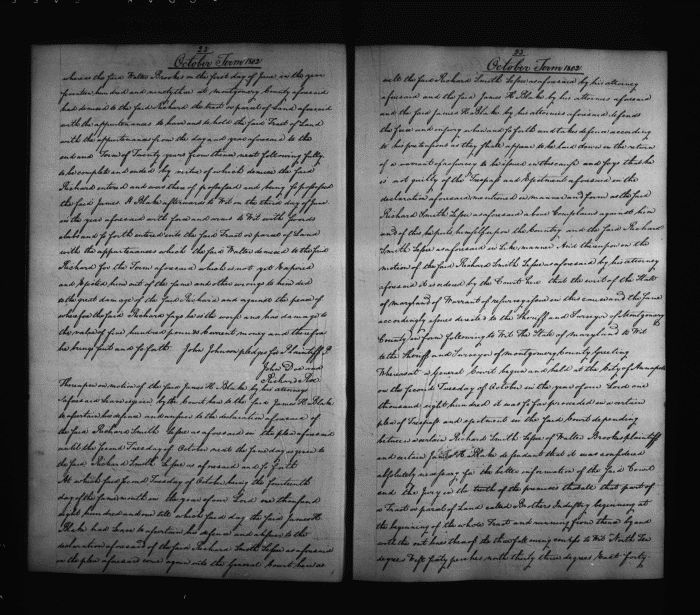 22
October Term 1802
whereas the said Walter Brookes on the first day of June in the year
seventeen hundred and ninety nine at Montgomery County aforesaid
had demised to the said Richard the tract or parcel of Land aforesaid
with the appurtenances to have and to hold the said Tract of Land
with the appurtenances from the day and year aforesaid to the
end and Term of Twenty years from thence next following fully
to be complete and ended by virtue of which demise the said
Richard entered and was thereof possessed and being so possessed
the said James H Blake afterwards to Wit on the third day of June
in the year aforesaid with force and arms to Wit with Swords
clubs and so forth entered into the said Tract or parcel of Land
with the appurtenances which the said Walter demised to the said
Richard for the Term aforesaid which is not yet expired
and Ejected him out of the same and other wrongs to him did
to the great damage of the said Richard and against the peace of
wherefore the said Richard says he is the worse and has damage to
the value of five hundred pounds Current money and therefore
he brings suit and so forth John Johnson pledges for Plaintiff P
John Doe and
Richard Roe
Thereupon on motion of the said James H Blake by his attorney
aforesaid leave is given by the Court here to the said James H Blake
to imparl his defence and answer to the declaration aforesaid of
the said Richard Smith Lessee as aforesaid on the plea aforesaid
until the second Tuesday of October next the same day is given to
the said Richard Smith Lessee as aforesaid and so forth
At which said second Tuesday of October being the fourteenth
day of the same month in the year of our Lord one thousand
eight hundred and one till which said day the said James H
Blake had leave to imparl his defence and answer to the
declaration aforesaid of the said Richard Smith Lessee as aforesaid
on the plea aforesaid come again into the General Court here as
23
October Term 1802
well the said Richard Smith Lessee as aforesaid by his attorney
aforesaid and the said James H Blake by his attorney aforesaid
and the said James H Blake by his attorney aforesaid defends
the force and injury when and so forth and takes defence according
to his pretensions as they shall appear to be laid down in the return
of a warrant of resurvey to be issued in this cause and says that he
is not guilty of the Trespass and Ejectment aforesaid in the
declaration aforesaid mentioned in manner and form as the said
Richard Smith Lessee as aforesaid above Complains against him
and of this he puts himself upon the Country and the said Richard
Smith Lessee as aforesaid in Like manner And thereupon on the
motion of the said Richard Smith Lessee as aforesaid by his attorney
aforesaid it is ordered by the Court here that the writ of the State
of Maryland of Warrant of resurvey issue in this cause and the same
accordingly issues directed to the Sheriff and Surveyor of Montgomery
County in form following to Wit The State of Maryland to Wit
to the Sheriff and Surveyor of Montgomery County Greeting
Whereas at a General Court begun and held at the City of Annapolis
on the second Tuesday of October in the year of our Lord one
thousand eight hundred it was so far proceeded in a certain
plea of Trespass and ejectment in the said Court depending
between a certain Richard Smith Lessee of Walter Brookes plaintiff
and certain James H Blake defendant that it was considered
absolutely necessary for the better information of the said Court
and the Jury in the truth of the premises that all that part of
a Tract or parcel of Land called a Brothers Industry beginning at
the beginning of the whole Tract and running from thence by and
with the out lines thereof the three following courses to Wit North Ten
degrees West sixty perches north thirty three degrees East forty